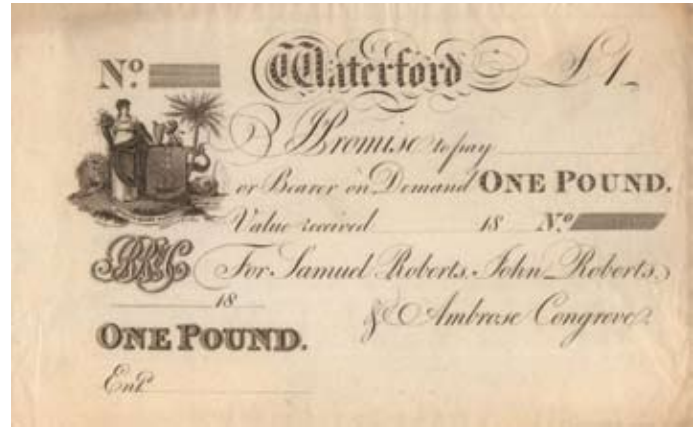 No. Waterford £1
I Promise to pay
or Bearer on Demand ONE POUND.
Value received 18 No.
RR&C For Samuel Roberts, John Roberts,
18
& Ambrose Congreve.
ONE POUND.
Entd.